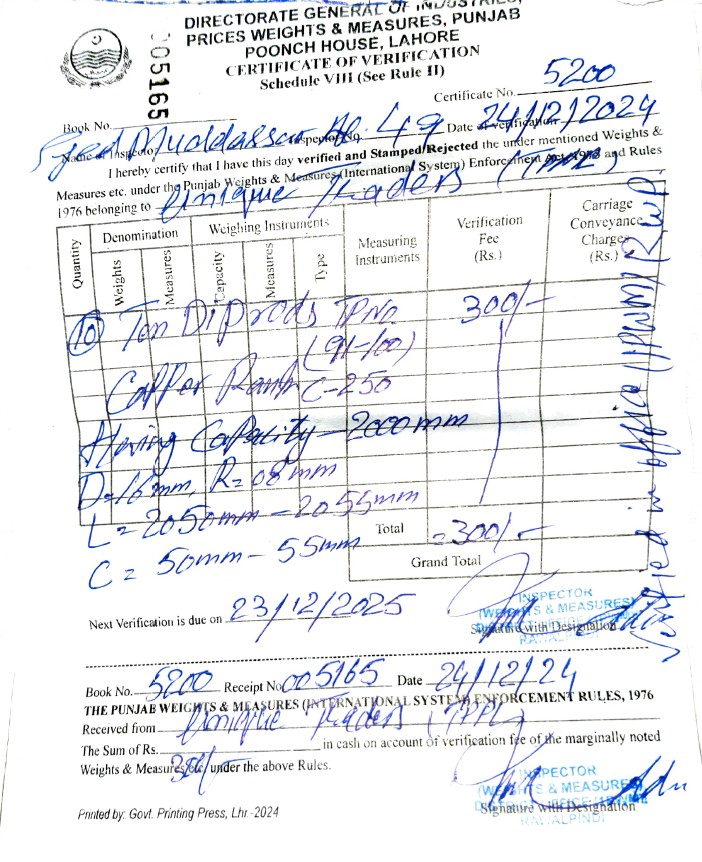 DIRECTORATE GENERAL OF INDUSTRIES,
PRICES WEIGHTS & MEASURES, PUNJAB
POONCH HOUSE, LAHORE
CERTIFICATE OF VERIFICATION
Schedule VIII (See Rule II)
005165
Certificate No. 5200
Book No.
Name of Inspector Syed Muddassar Inspector No. 49 Date of verification 24/12/2024
I hereby certify that I have this day verified and Stamped/Rejected the under mentioned Weights &
Measures etc. under the Punjab Weights & Measures (International System) Enforcement Act 1975 and Rules
1976 belonging to Unique Traders
Quantity Denomination Weighing Instruments Measuring Instruments Verification Fee (Rs.) Carriage Conveyance Charges (Rs.)
Weights Measures Capacity Measures Type
10 Ten Dip rods TP No. 300/-
(91-100)
C-250
Having Capacity - 2000mm
D=16mm, R=08mm
L = 2050mm - 2055mm
C = 50mm - 55mm
Total =300/-
Grand Total
Verified in office
Next Verification is due on 23/12/2025
INSPECTOR
(WEIGHTS & MEASURES)
RAWALPINDI
Signature with Designation
Book No. 5200 Receipt No 005165 Date 24/12/24
THE PUNJAB WEIGHTS & MEASURES (INTERNATIONAL SYSTEM) ENFORCEMENT RULES, 1976
Received from Unique Traders
The Sum of Rs. in cash on account of verification fee of the marginally noted
Weights & Measures etc. under the above Rules.
INSPECTOR
(WEIGHTS & MEASURES)
RAWALPINDI
Signature with Designation
Printed by: Govt. Printing Press, Lhr.-2024